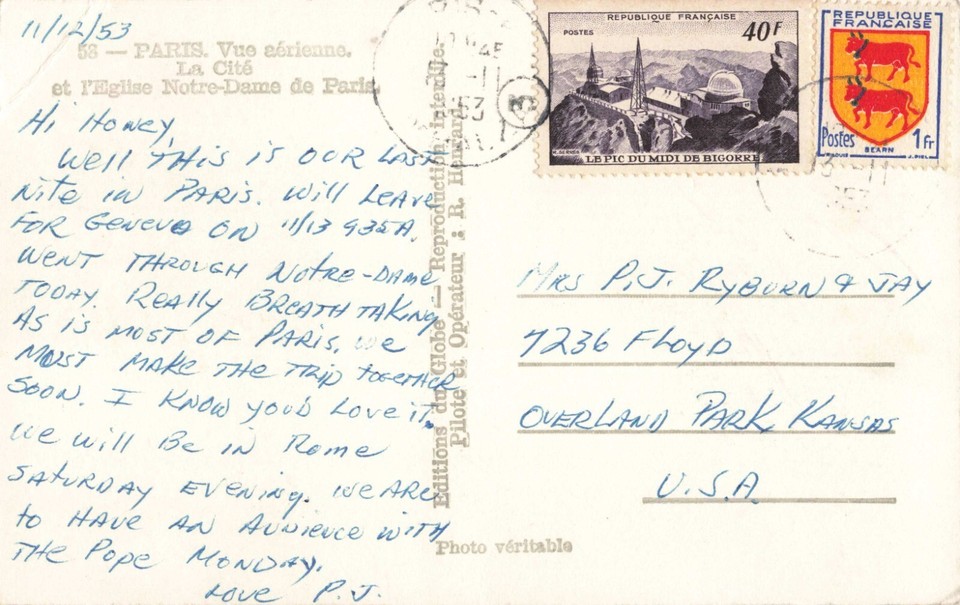 11/12/53
58 — PARIS. Vue aérienne.
La Cité
et l'Eglise Notre-Dame de Paris.
Hi Honey,
Well THIS IS OUR LAST
NITE IN PARIS. WILL LEAVE
FOR GENEVA ON 11/13 935A.
WENT THROUGH NOTRE-DAME
TODAY. REALLY BREATH TAKING
AS IS MOST OF PARIS. WE
MUST MAKE THE TRIP TOGETHER
SOON. I KNOW YOU'D LOVE IT.
WE WILL BE IN ROME
SATURDAY EVENING. WE ARE
TO HAVE AN AUDIENCE WITH
THE POPE MONDAY.
LOVE P.J.
Editions du Globe — Reproduction interdite.
Pilote et Opérateur : R. Henrard.
Photo véritable
RÉPUBLIQUE FRANÇAISE
POSTES
40F
LE PIC DU MIDI DE BIGORRE
REPUBLIQUE
FRANÇAISE
Postes
1Fr
BEARN
MRS P.J. RYBURN & JAY
7236 FLOYD
OVERLAND PARK, KANSAS
U.S.A.